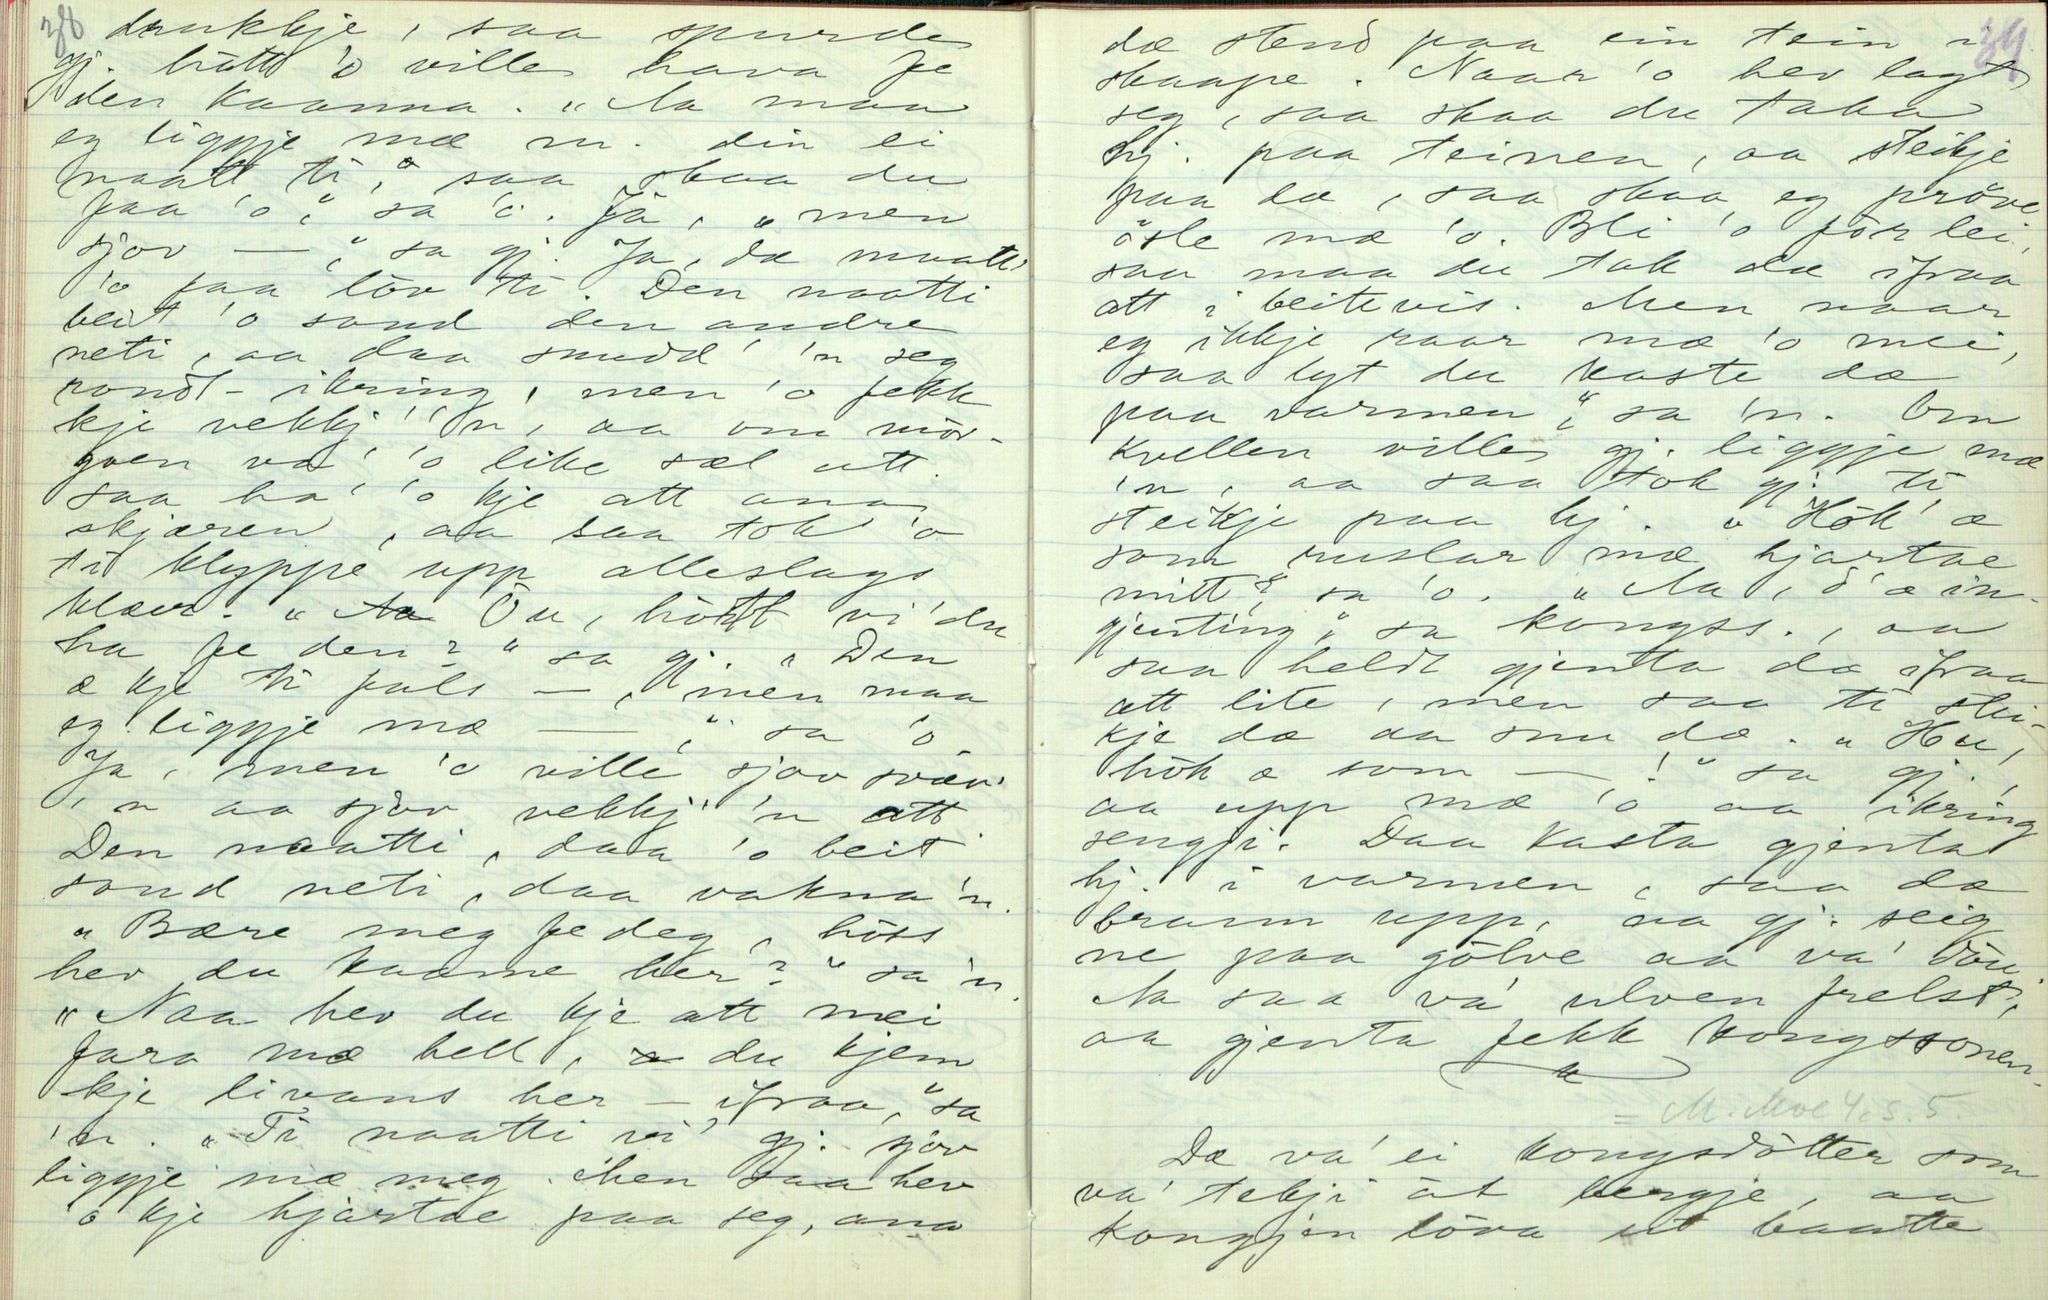 38
drukkje, saa spurde
gj. hått 'o ville hava fe
den kaanna. "Aa maa
eg liggje mæ m. din ei
naatt ti, saa skaa du
faa 'o," sa 'o. Ja, "men
sjov —," sa gj. Ja, dæ maatt'
'o faa lov ti. Den naatti
beit 'o sond den andre
neti, aa daa snudd' 'n seg
rondt-ikring, men 'o fekk
kje vekkj' 'n, aa om mör-
goen va' 'o like sæl utt.
Saa ha' 'o kje att ana
skjæren, aa saa tok 'o
ti klyppe upp alleslags
klæer. "Aa Öu, hött vi' du
ha fe den?" sa gj. "Den
æ kje ti fals —, men maa
eg liggje mæ —," sa 'o.
Ja, men 'o ville sjov svæv'
'n aa sjov vekkj' 'n att.
Den naatti, daa 'o beit
sond neti, daa vakna 'n.
"Bære meg fe deg, höss
hev du kaame her?" sa 'n.
"Naa hev du kje att mei
fara mæ hell, du kjem
kje livans her-ifraa," sa
'n. "Ti naatti vi' gj. sjov
liggje mæ meg. Men saa hev
'o kje hjartae paa seg, ana
39
dæ stend paa ein tein i
skaape. Naar 'o hev lagt
seg, saa skaa du taka
hj. paa teinen, aa steikje
paa dæ, saa skaa eg pröve
ösle mæ 'o. Bli 'oför lei,
saa maa du tak dæ ifraa
att i beitevis. Men naar
eg ikkje raar mæ 'o mei,
saa lyt du kaste dæ
paa varmen", sa 'n. Om
kvellen ville gj. liggje mæ
'n, aa saa tok gj. ti
steikje paa hj. "Hök' æ
som ruslar mæ hjartae
mitt?" sa 'o. "Aa, d'æ in-
gjenting," sa kongss., aa
saa heldt gjenta dæ ifraa
att lite, men saa ti stei-
kje dæ aa snu dæ. "Hu,
hök æ som —!" sa gj.,
aa upp mæ 'o aa ikring
sengji. Daa kasta gjenta
hj. i varmen, saa dæ
brann upp, aa gj. seig
ne paa gölve aa va' döu.
Aa saa va' ulven frelst,
aa gjenta fekk kongssonen.
= M. Moe 4, s. 5.
Dæ va' ei kongsdötter som
va' tekji åt bergje, aa
kongjen löva ut baatte